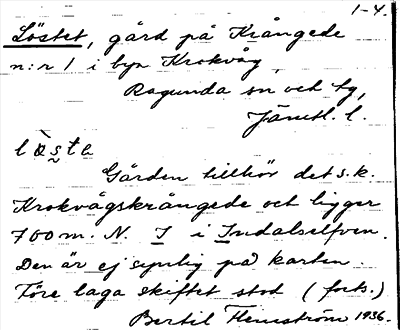 1-4.
Löstet, gård på Krångede
n:r 1 i byn Krokvåg,
Ragunda sn och tg,
Jämtl. l.
lö̀ste
Gården tillhör det s.k.
Krokvågskrångede och ligger
700 m. N. I i Indalselfven.
Den är ej synlig på kartan.
Före laga skiftet stod (forts.)
Bertil Flemström 1936.